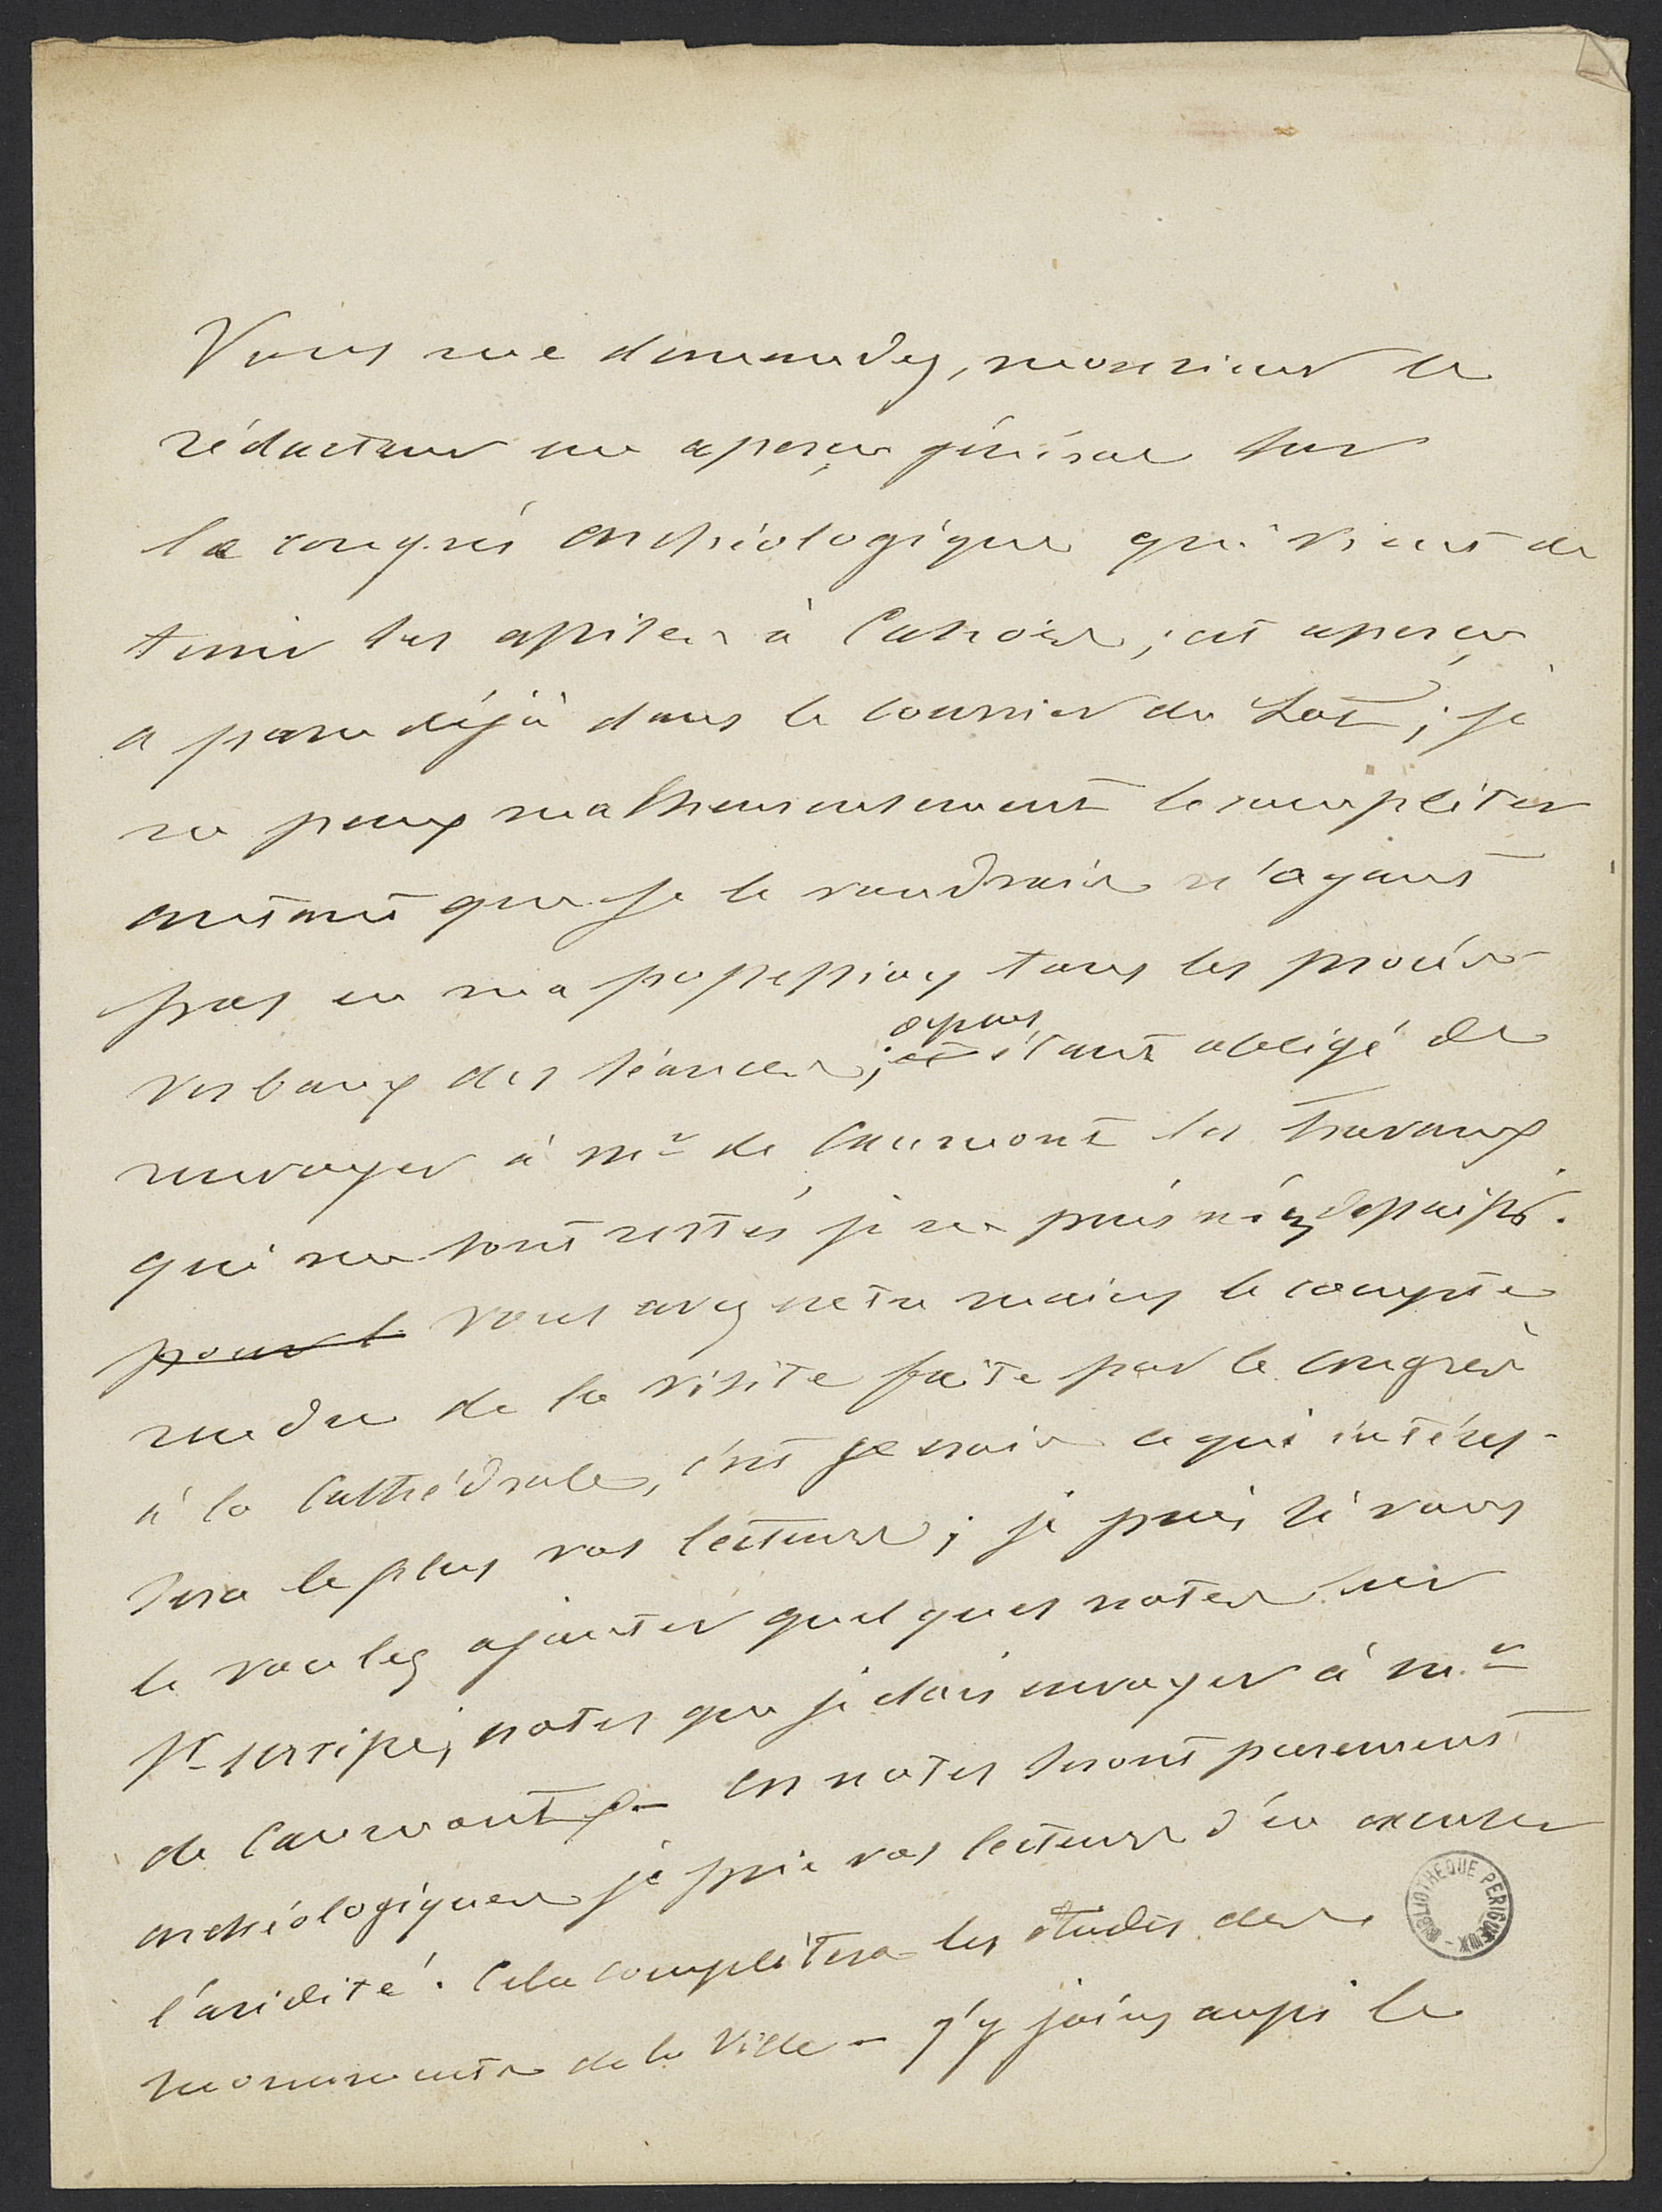 Vous me demandez, monsieur le
rédacteur un aperçu général sur
le congrés archéologique qui vient de
tenir ses assises à Cahors ; cet aperçu
a paru déjà dans le courrier du Lot ; je
ne peux malheureusement le complèter
autant que je le voudrais n'ayant
pas en ma possession tous les procés
verbaux des séances ; et depuis étant obligé de
renvoyer à Mr de Caumont les travaux
qui me sont restés je ne puis m'en déssaisir.
pour l vous avez entre mains le compte
rendu de la visite faite par le congrès
à la Cathédrale, c'est je crois ce qui intéres-
sera le plus vos lecteurs ; je puis si vous
le voulez ajouter quelques notes sur
cet édifice, notes que je dois envoyer à Mr
de Caumont – ces notes seront purement
archéologiques je prie vos lecteurs d'en excuser
l'aridité. Cela complètera les études des
monuments de la Ville – j'y joins aussi le
BIBLIOTHEQUE PERIGUEUX